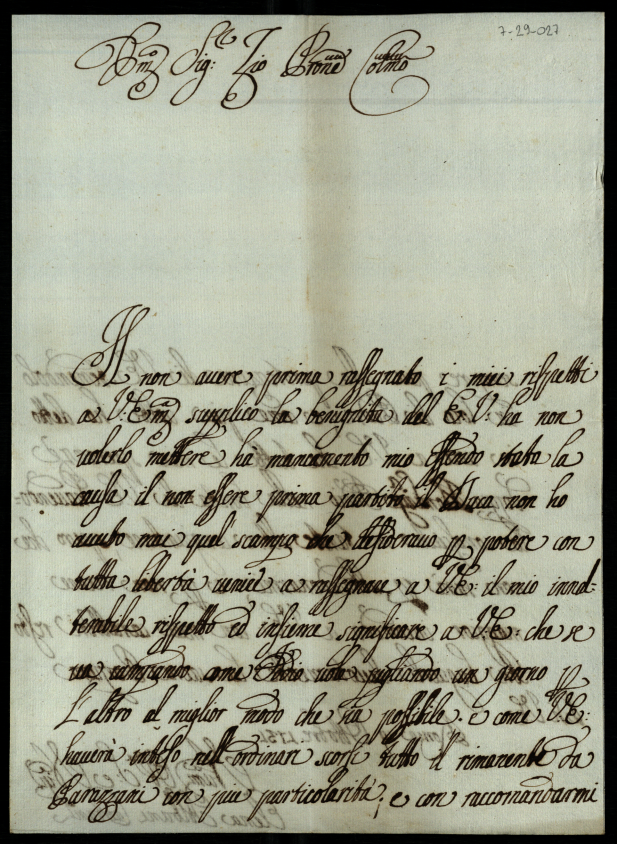 7-29-027
Em̃o Sig.r Zio Pron̄e Colmo
Il non auere prima rassegnato i miei rispetti
a V: Em̃ supplico la benignità del E: V: ha non
uolerlo mettere ha mancamento mio essendo stata la
causa il non essere prima partito il Duca non ho
auuto mai quel scampo che desiderauo p potere con
tutta libertà venire a rassegnare a V:E: il mio inal-
terabile rispetto ed insieme significare a V:E: che se
ua campando come Iddio uole pigliando un giorno p
l'altro al miglior modo che sia possibile. e come V:E:
hauerà inteso nell'ordinari scorsi tutto il rimanente da
Barazzani con piu particolarità; e con raccomandarmi